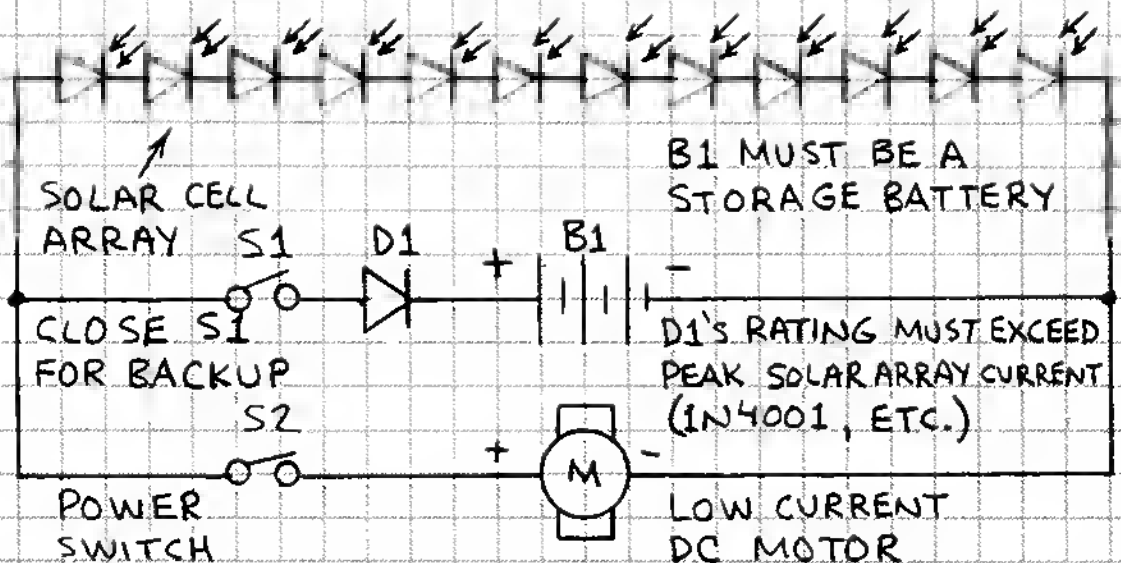 SOLAR CELL
ARRAY
B1 MUST BE A
STORAGE BATTERY
S1
D1
+
B1
-
CLOSE S1
FOR BACKUP
D1'S RATING MUST EXCEED
PEAK SOLAR ARRAY CURRENT
(1N4001, ETC.)
S2
+
M
-
POWER
SWITCH
LOW CURRENT
DC MOTOR